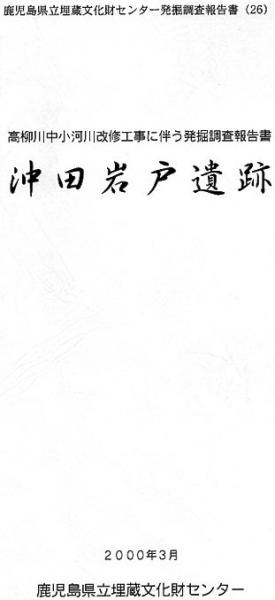 鹿児島県立埋蔵文化財センター発掘調査報告書（26）
高柳川中小河川改修工事に伴う発掘調査報告書
沖田岩戸遺跡
2000年3月
鹿児島県立埋蔵文化財センター